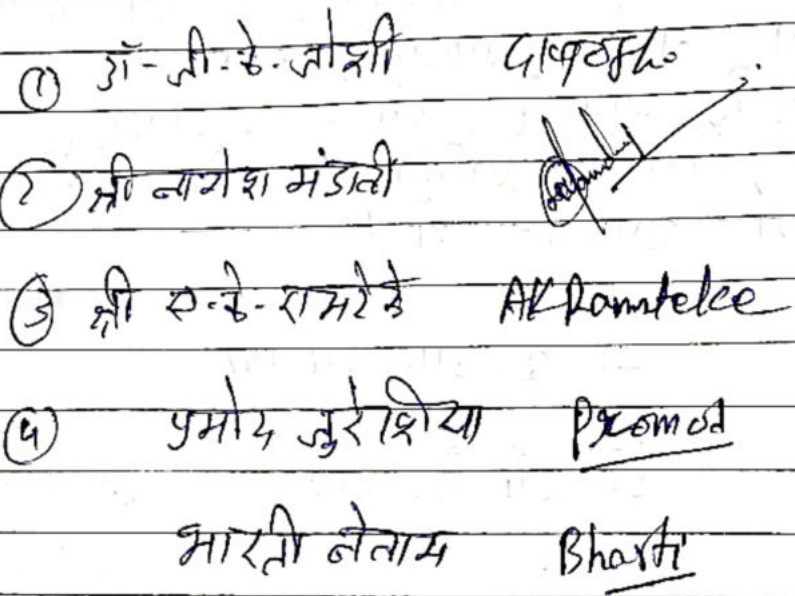 ① डॉ- जी-के-जोशी
② श्री नागेश मंडावी
③ श्री ए-के-रामटेके AKRamteke
④ प्रमोद जुरेशिया Pramod
भारती नेताम Bharti